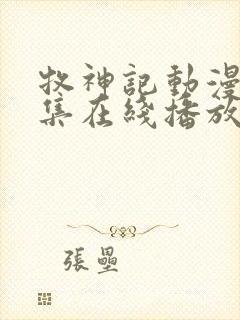 牧神記動漫
集在綫播放
張壘